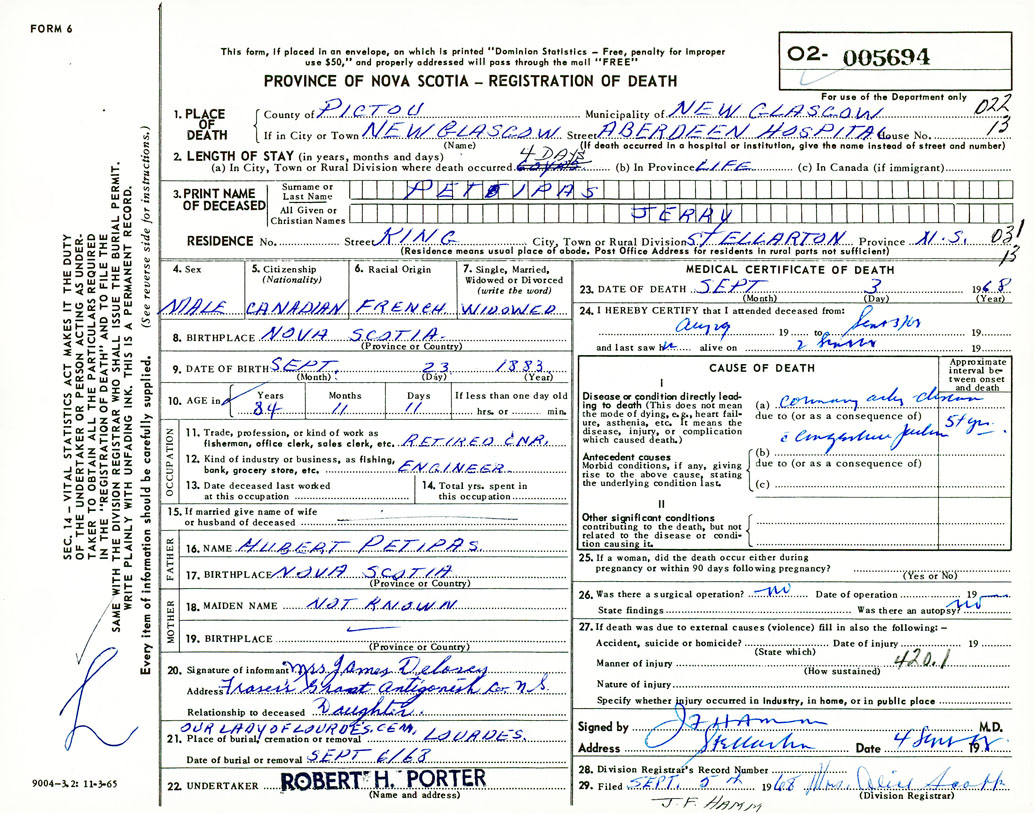 FORM 6
This form, if placed in an envelope, on which is printed "Dominion Statistics – Free, penalty for improper
use $50," and properly addressed will pass through the mail "FREE"
O2- 005694
PROVINCE OF NOVA SCOTIA – REGISTRATION OF DEATH
For use of the Department only
1. PLACE OF DEATH
County of PICTOU Municipality of NEW GLASGOW 022
If in City or Town NEW GLASGOW Street ABERDEEN HOSPITAL House No. 13
(Name) (If death occurred in a hospital or institution, give the name instead of street and number)
2. LENGTH OF STAY (in years, months and days) 4 DAYS
(a) In City, Town or Rural Division where death occurred (b) In Province LIFE (c) In Canada (if immigrant)
3. PRINT NAME OF DECEASED
Surname or Last Name PETTIPAS
All Given or Christian Names JERRY
RESIDENCE No. Street KING City, Town or Rural Division STELLARTON Province N.S. 031
(Residence means usual place of abode. Post Office Address for residents in rural parts not sufficient) 13
4. Sex MALE
5. Citizenship (Nationality) CANADIAN
6. Racial Origin FRENCH
7. Single, Married, Widowed or Divorced (write the word) WIDOWED
8. BIRTHPLACE NOVA SCOTIA
(Province or Country)
9. DATE OF BIRTH SEPT. 23 1883
(Month) (Day) (Year)
10. AGE in Years 84 Months 11 Days 11 If less than one day old hrs. or min.
OCCUPATION
11. Trade, profession, or kind of work as
fisherman, office clerk, sales clerk, etc. RETIRED CNR.
12. Kind of industry or business, as fishing,
bank, grocery store, etc. ENGINEER
13. Date deceased last worked
at this occupation
14. Total yrs. spent in
this occupation
15. If married give name of wife
or husband of deceased
FATHER
16. NAME HUBERT PETIPAS.
17. BIRTHPLACE NOVA SCOTIA
(Province or Country)
MOTHER
18. MAIDEN NAME NOT KNOWN
19. BIRTHPLACE
(Province or Country)
20. Signature of informant Mrs James Delorey
Address Frasers Grant Antigonish Co. N.S.
Relationship to deceased Daughter.
OUR LADY OF LOURDES. CEM,
21. Place of burial, cremation or removal LOURDES.
Date of burial or removal SEPT 6/68
22. UNDERTAKER ROBERT H. PORTER
(Name and address)
MEDICAL CERTIFICATE OF DEATH
23. DATE OF DEATH SEPT 3 1968
(Month) (Day) (Year)
24. I HEREBY CERTIFY that I attended deceased from:
Aug 29 19 to Sept 3/68 19
and last saw him alive on 2 Sept 19
CAUSE OF DEATH
Approximate interval between onset and death
I
Disease or condition directly leading
to death (This does not mean
the mode of dying, e.g., heart failure,
asthenia, etc. It means the
disease, injury, or complication
which caused death.)
(a) coronary artery disease
due to (or as a consequence of) 5+ yrs.
c congestive failure
Antecedent causes
Morbid conditions, if any, giving
rise to the above cause, stating
the underlying condition last.
(b)
due to (or as a consequence of)
(c)
II
Other significant conditions
contributing to the death, but not
related to the disease or condition
causing it.
25. If a woman, did the death occur either during
pregnancy or within 90 days following pregnancy?
(Yes or No)
26. Was there a surgical operation? no Date of operation 19
State findings Was there an autopsy? no
27. If death was due to external causes (violence) fill in also the following: –
Accident, suicide or homicide? Date of injury 19
(State which)
Manner of injury 420.1
(How sustained)
Nature of injury
Specify whether injury occurred in industry, in home, or in public place
Signed by J F HAMM M.D.
Address Stellarton Date 4 Sept 1968
28. Division Registrar's Record Number
29. Filed SEPT. 5th 1968 Mrs. Alice Scott
(Division Registrar)
J.F. HAMM
SEC. 14 – VITAL STATISTICS ACT MAKES IT THE DUTY
OF THE UNDERTAKER OR PERSON ACTING AS UNDER-
TAKER TO OBTAIN ALL THE PARTICULARS REQUIRED
IN THE "REGISTRATION OF DEATH" AND TO FILE THE
SAME WITH THE DIVISION REGISTRAR WHO SHALL ISSUE THE BURIAL PERMIT.
WRITE PLAINLY WITH UNFADING INK. THIS IS A PERMANENT RECORD.
Every item of information should be carefully supplied. (See reverse side for instructions.)
9004-3.2: 11-3-65